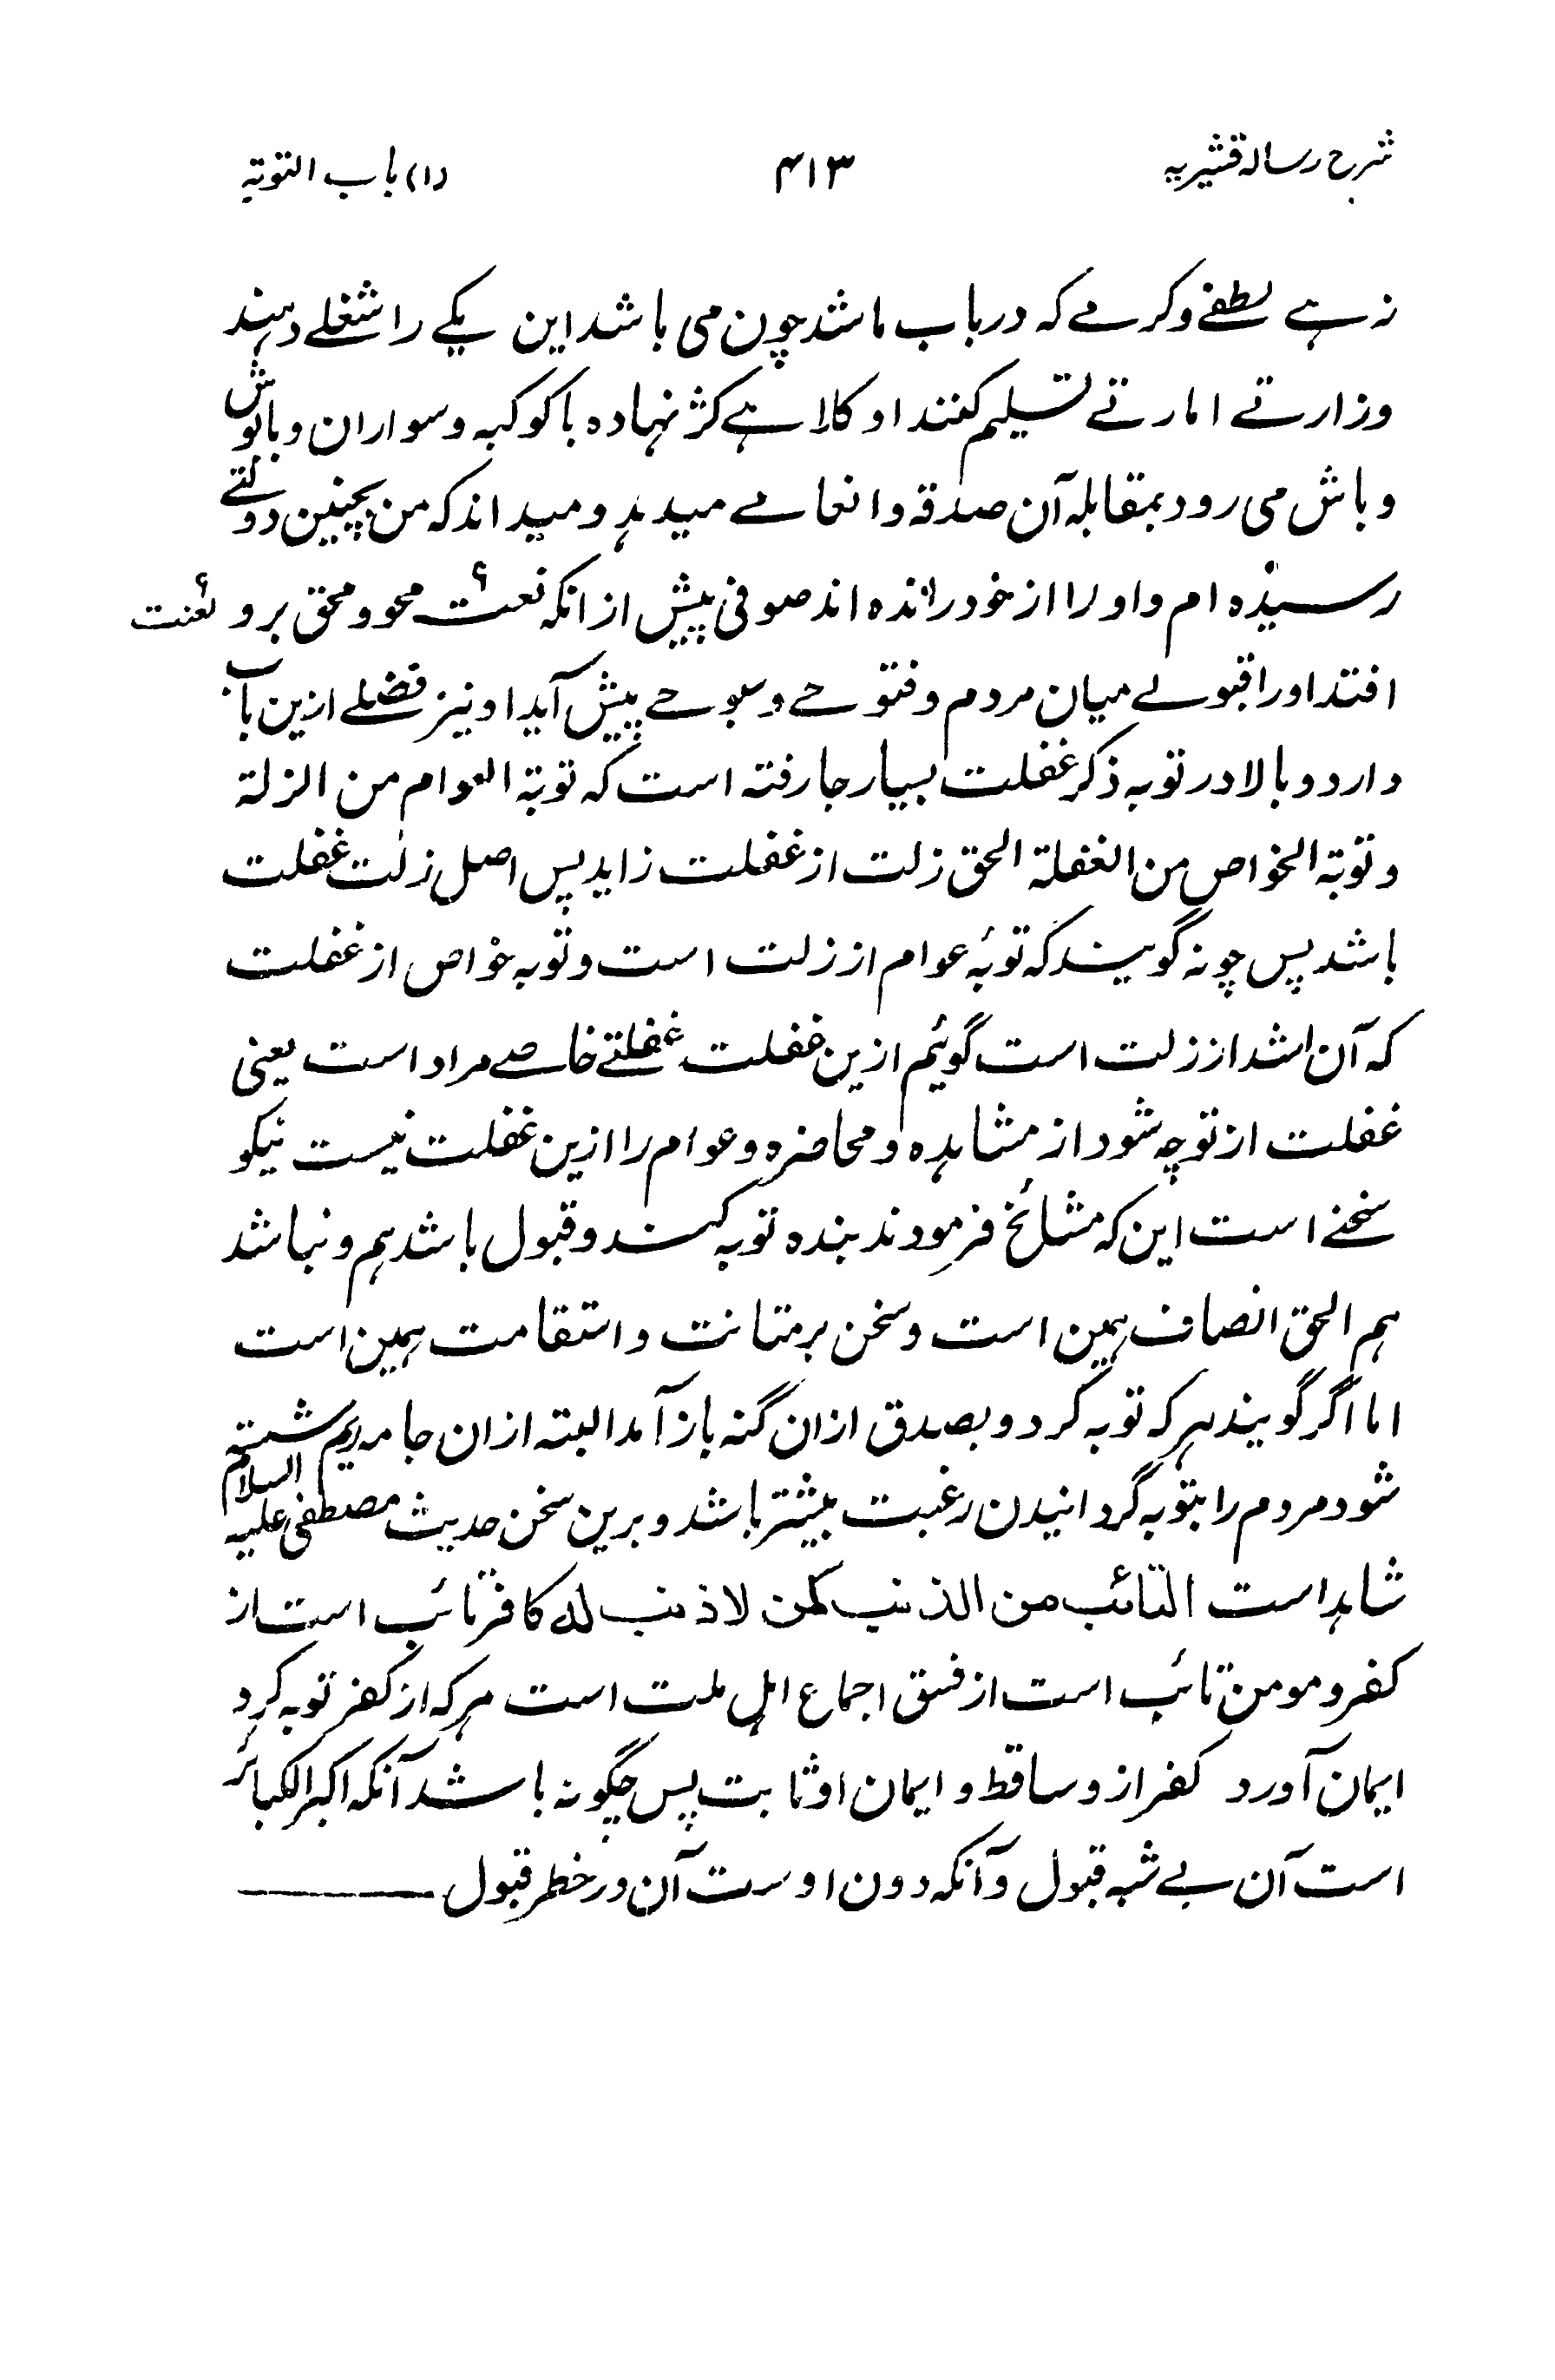 شرح رساله قشیریه ۴۱۳ (۱) باب التوبة
زہے لطفے و کرمے کہ درباب ما شد چون می باشد این یکے را شغلے دہند
وزارتے امارتے تسلیم کنند او کلاہے کژ نہادہ با کوکبہ و سواران و باتوش
و باش می رود بمقابلہ آن صدقہ و انعامے میدہد و میداند کہ من بچنین دولتے
رسیدہ ام و او را از خود راندہ اند صوفی پیش از انکہ نعت محو و محق برو
لعنت
افتد او را قبولے میان مردم و فتوحے و سبوحے پیش آید او نیز فضلے ازین باب
دارد و بالا در توبہ ذکر غفلت بسیار جا رفتہ است کہ توبة العوام من الزلة
و توبة الخواص من الغفلة الحق زلت از غفلت زاید پس اصل زلت غفلت
باشد پس چونہ گویند کہ توبۂ عوام از زلت است و توبہ خواص از غفلت
کہ آن اشد از زلت است گوئیم ازین غفلت غفلتے خاصے مراد است یعنی
غفلت از توجہ شود از مشاہدہ و محاضرہ و عوام را ازین غفلت نیست نیکو
سخنے است این کہ مشائخ فرمودند بندہ توبہ کند و قبول باشد ہم و نباشد
ہم الحق انصاف ہمین است و سخن بر متانت و استقامت ہمین است
اما اگر گویند ہر کہ توبہ کرد و بصدق ازان گنہ باز آمد البتہ ازان جامہ ریم شستہ
شود مردم را بتوبہ گردانیدن رغبت بیشتر باشد و برین سخن حدیث مصطفی علیہ السلام
شاہد است التائب من الذنب کمن لا ذنب لہ کافر تائب است از
کفر و مومن تائب است از فسق اجماع اہل ملت است ہر کہ از کفر توبہ کرد
ایمان آورد کفر ازو ساقط و ایمان او ثابت پس چگونہ باشد آنکہ اکبر الکبائر
است آن بے شبہ قبول و آنکہ دون اوست آن در خطر قبول